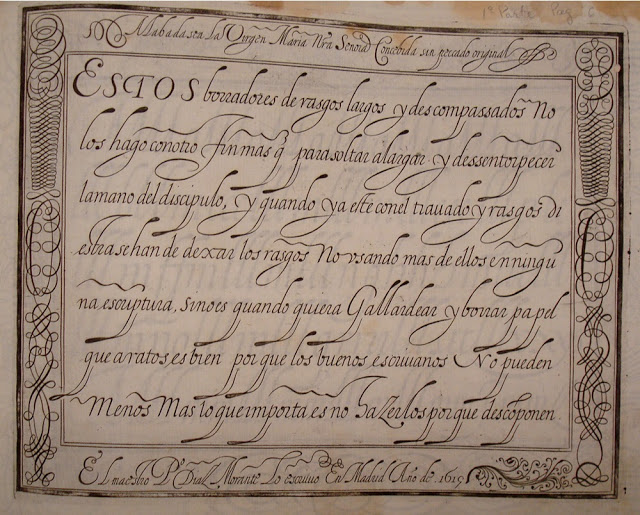 1ª Parte Pag 6
Alabada sea La Virgen Maria Nra Señora Concebida sin peccado original
ESTOS borradores de rasgos largos y descompassados No
los hago con otro Fin mas q̃ para soltar alargar y dessentorpecer
la mano del discipulo, y quando ya este con el trauado y rasgos di
estra se han de dexar los rasgos No vsando mas de ellos en ningu
na escriptura, sino es quando quiera Gallardear y borrar papel
que a ratos es bien porque los buenos escriuanos No pueden
Menos Mas lo que importa es no hazerlos porque descõponen
El maestro Pº Diaz Morante Lo escriuio En Madrid Año de 1615